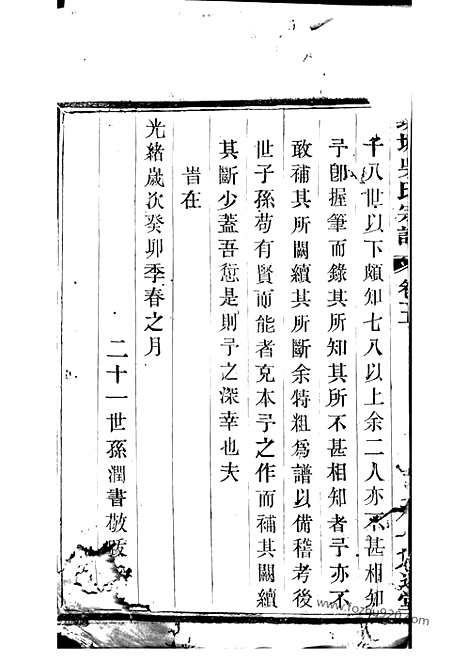 吳氏宗譜 卷五
十八世以下頗知七八以上余二人亦不甚相知
予卽握筆而錄其所知其所不甚相知者予亦不
敢補其所闕續其所斷余特粗爲譜以備稽考後
世子孫苟有賢而能者克本予之作而補其闕續
其斷少蓋吾愆是則予之深幸也夫
旹在
光緒歲次癸卯季春之月
二十一世孫潤書敬